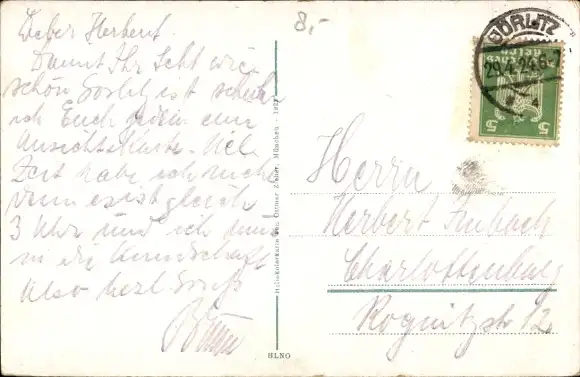 Lieber Herbert.
Damit Ihr seht wie
schön Görlitz ist schicke
ich Euch jedem eine
Ansichtskarte. Viel
Zeit habe ich nicht
denn es ist gleich
3 Uhr und ich muß
in die Kundschaft
Also herzl Gruß
8,-
GÖRLITZ
29.4.24.6-7
Deutsches Reich
5 5
Herrn
Herbert
Charlottenburg
Rognitzstr 12
Heliokolorkarte von Ottmar Zieher, München
HLNO